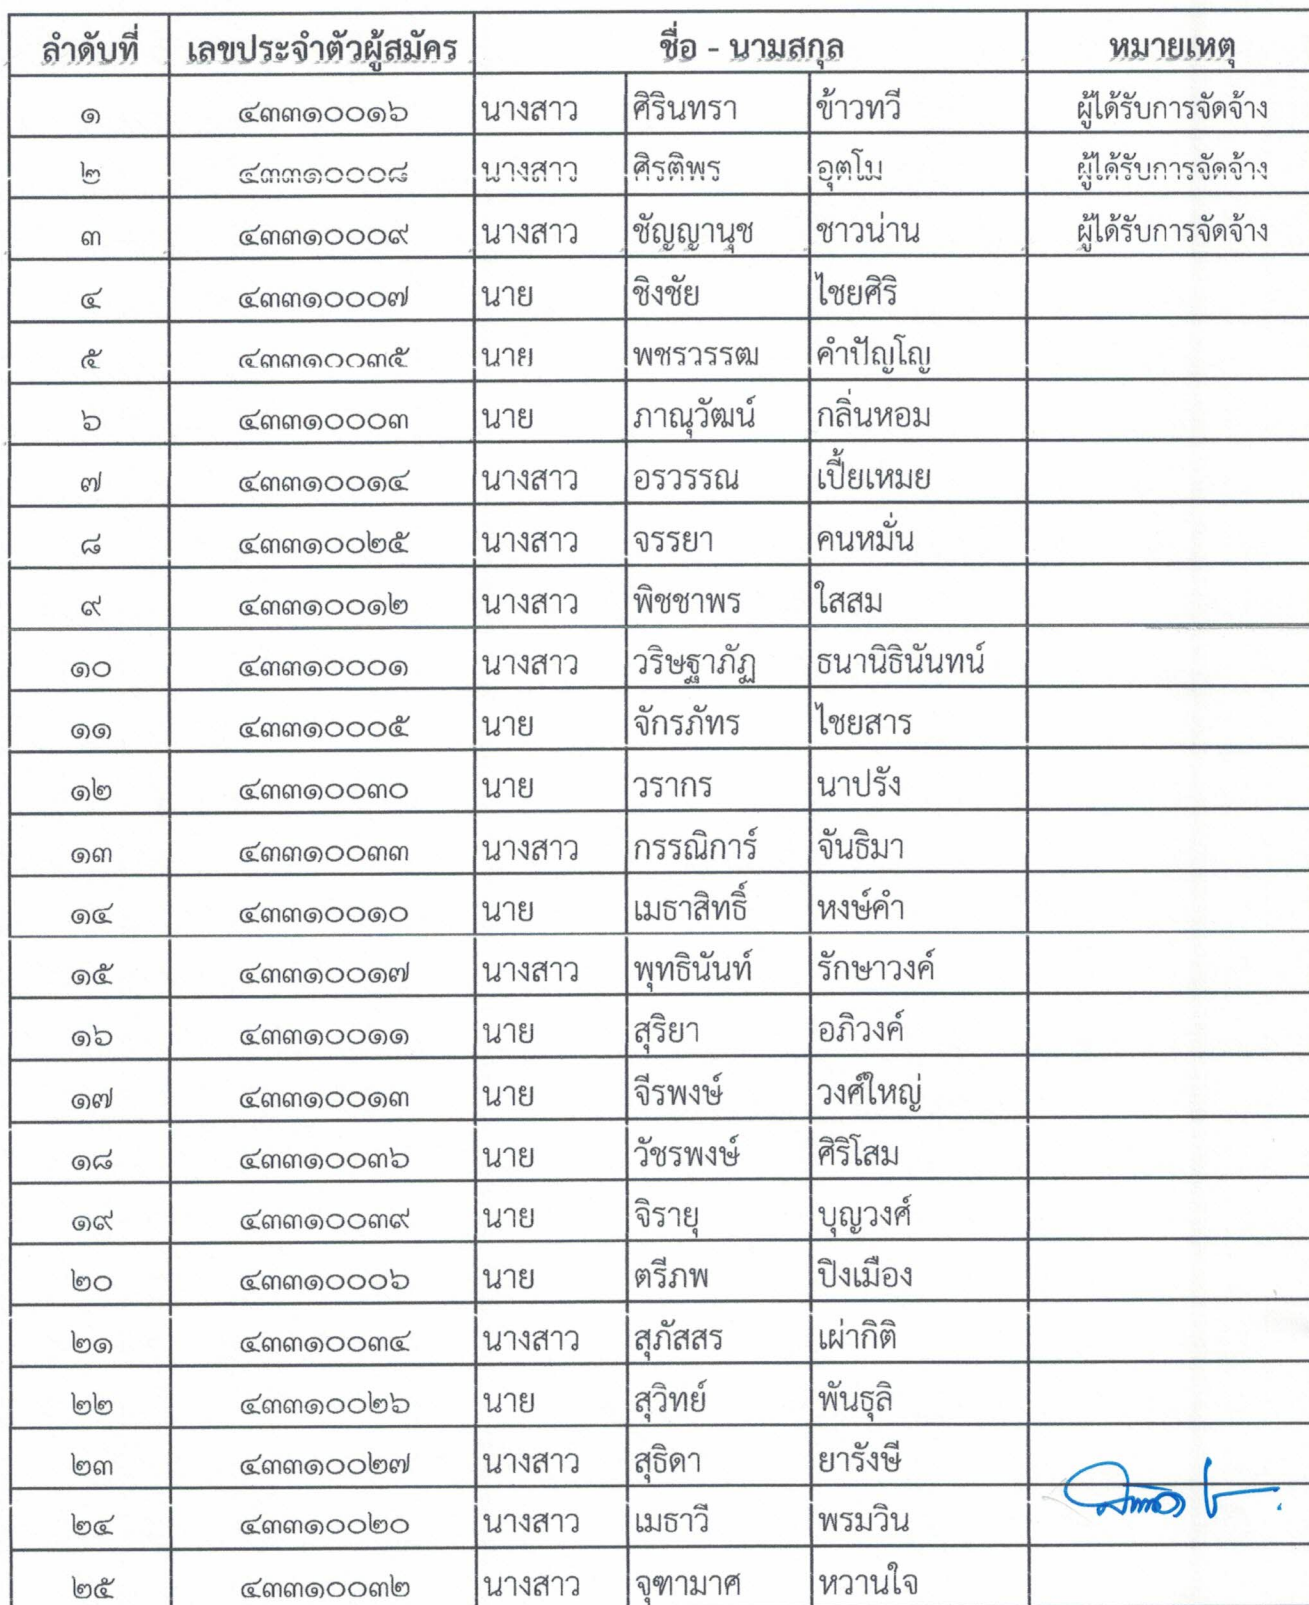 ลำดับที่ เลขประจำตัวผู้สมัคร ชื่อ - นามสกุล หมายเหตุ
๑ ๔๓๓๑๐๐๑๖ นางสาว ศิรินทรา ข้าวทวี ผู้ได้รับการจัดจ้าง
๒ ๔๓๓๑๐๐๐๘ นางสาว ศิรติพร อุตโม ผู้ได้รับการจัดจ้าง
๓ ๔๓๓๑๐๐๐๙ นางสาว ชัญญานุช ชาวน่าน ผู้ได้รับการจัดจ้าง
๔ ๔๓๓๑๐๐๐๗ นาย ชิงชัย ไชยศิริ
๕ ๔๓๓๑๐๐๓๕ นาย พชรวรรฒ คำปัญโญ
๖ ๔๓๓๑๐๐๐๓ นาย ภาณุวัฒน์ กลิ่นหอม
๗ ๔๓๓๑๐๐๑๔ นางสาว อรวรรณ เปี้ยเหมย
๘ ๔๓๓๑๐๐๒๕ นางสาว จรรยา คนหมั่น
๙ ๔๓๓๑๐๐๑๒ นางสาว พิชชาพร ใสสม
๑๐ ๔๓๓๑๐๐๐๑ นางสาว วริษฐาภัฏ ธนานิธินันทน์
๑๑ ๔๓๓๑๐๐๐๕ นาย จักรภัทร ไชยสาร
๑๒ ๔๓๓๑๐๐๓๐ นาย วรากร นาปรัง
๑๓ ๔๓๓๑๐๐๓๓ นางสาว กรรณิการ์ จันธิมา
๑๔ ๔๓๓๑๐๐๑๐ นาย เมธาสิทธิ์ หงษ์คำ
๑๕ ๔๓๓๑๐๐๑๗ นางสาว พุทธินันท์ รักษาวงค์
๑๖ ๔๓๓๑๐๐๑๑ นาย สุริยา อภิวงค์
๑๗ ๔๓๓๑๐๐๑๓ นาย จีรพงษ์ วงศ์ใหญ่
๑๘ ๔๓๓๑๐๐๓๖ นาย วัชรพงษ์ ศิริโสม
๑๙ ๔๓๓๑๐๐๓๙ นาย จิรายุ บุญวงศ์
๒๐ ๔๓๓๑๐๐๐๖ นาย ตรีภพ ปิงเมือง
๒๑ ๔๓๓๑๐๐๓๔ นางสาว สุภัสสร เผ่ากิติ
๒๒ ๔๓๓๑๐๐๒๖ นาย สุวิทย์ พันธุลิ
๒๓ ๔๓๓๑๐๐๒๗ นางสาว สุธิดา ยารังษี
๒๔ ๔๓๓๑๐๐๒๐ นางสาว เมธาวี พรมวิน
๒๕ ๔๓๓๑๐๐๓๒ นางสาว จุฑามาศ หวานใจ